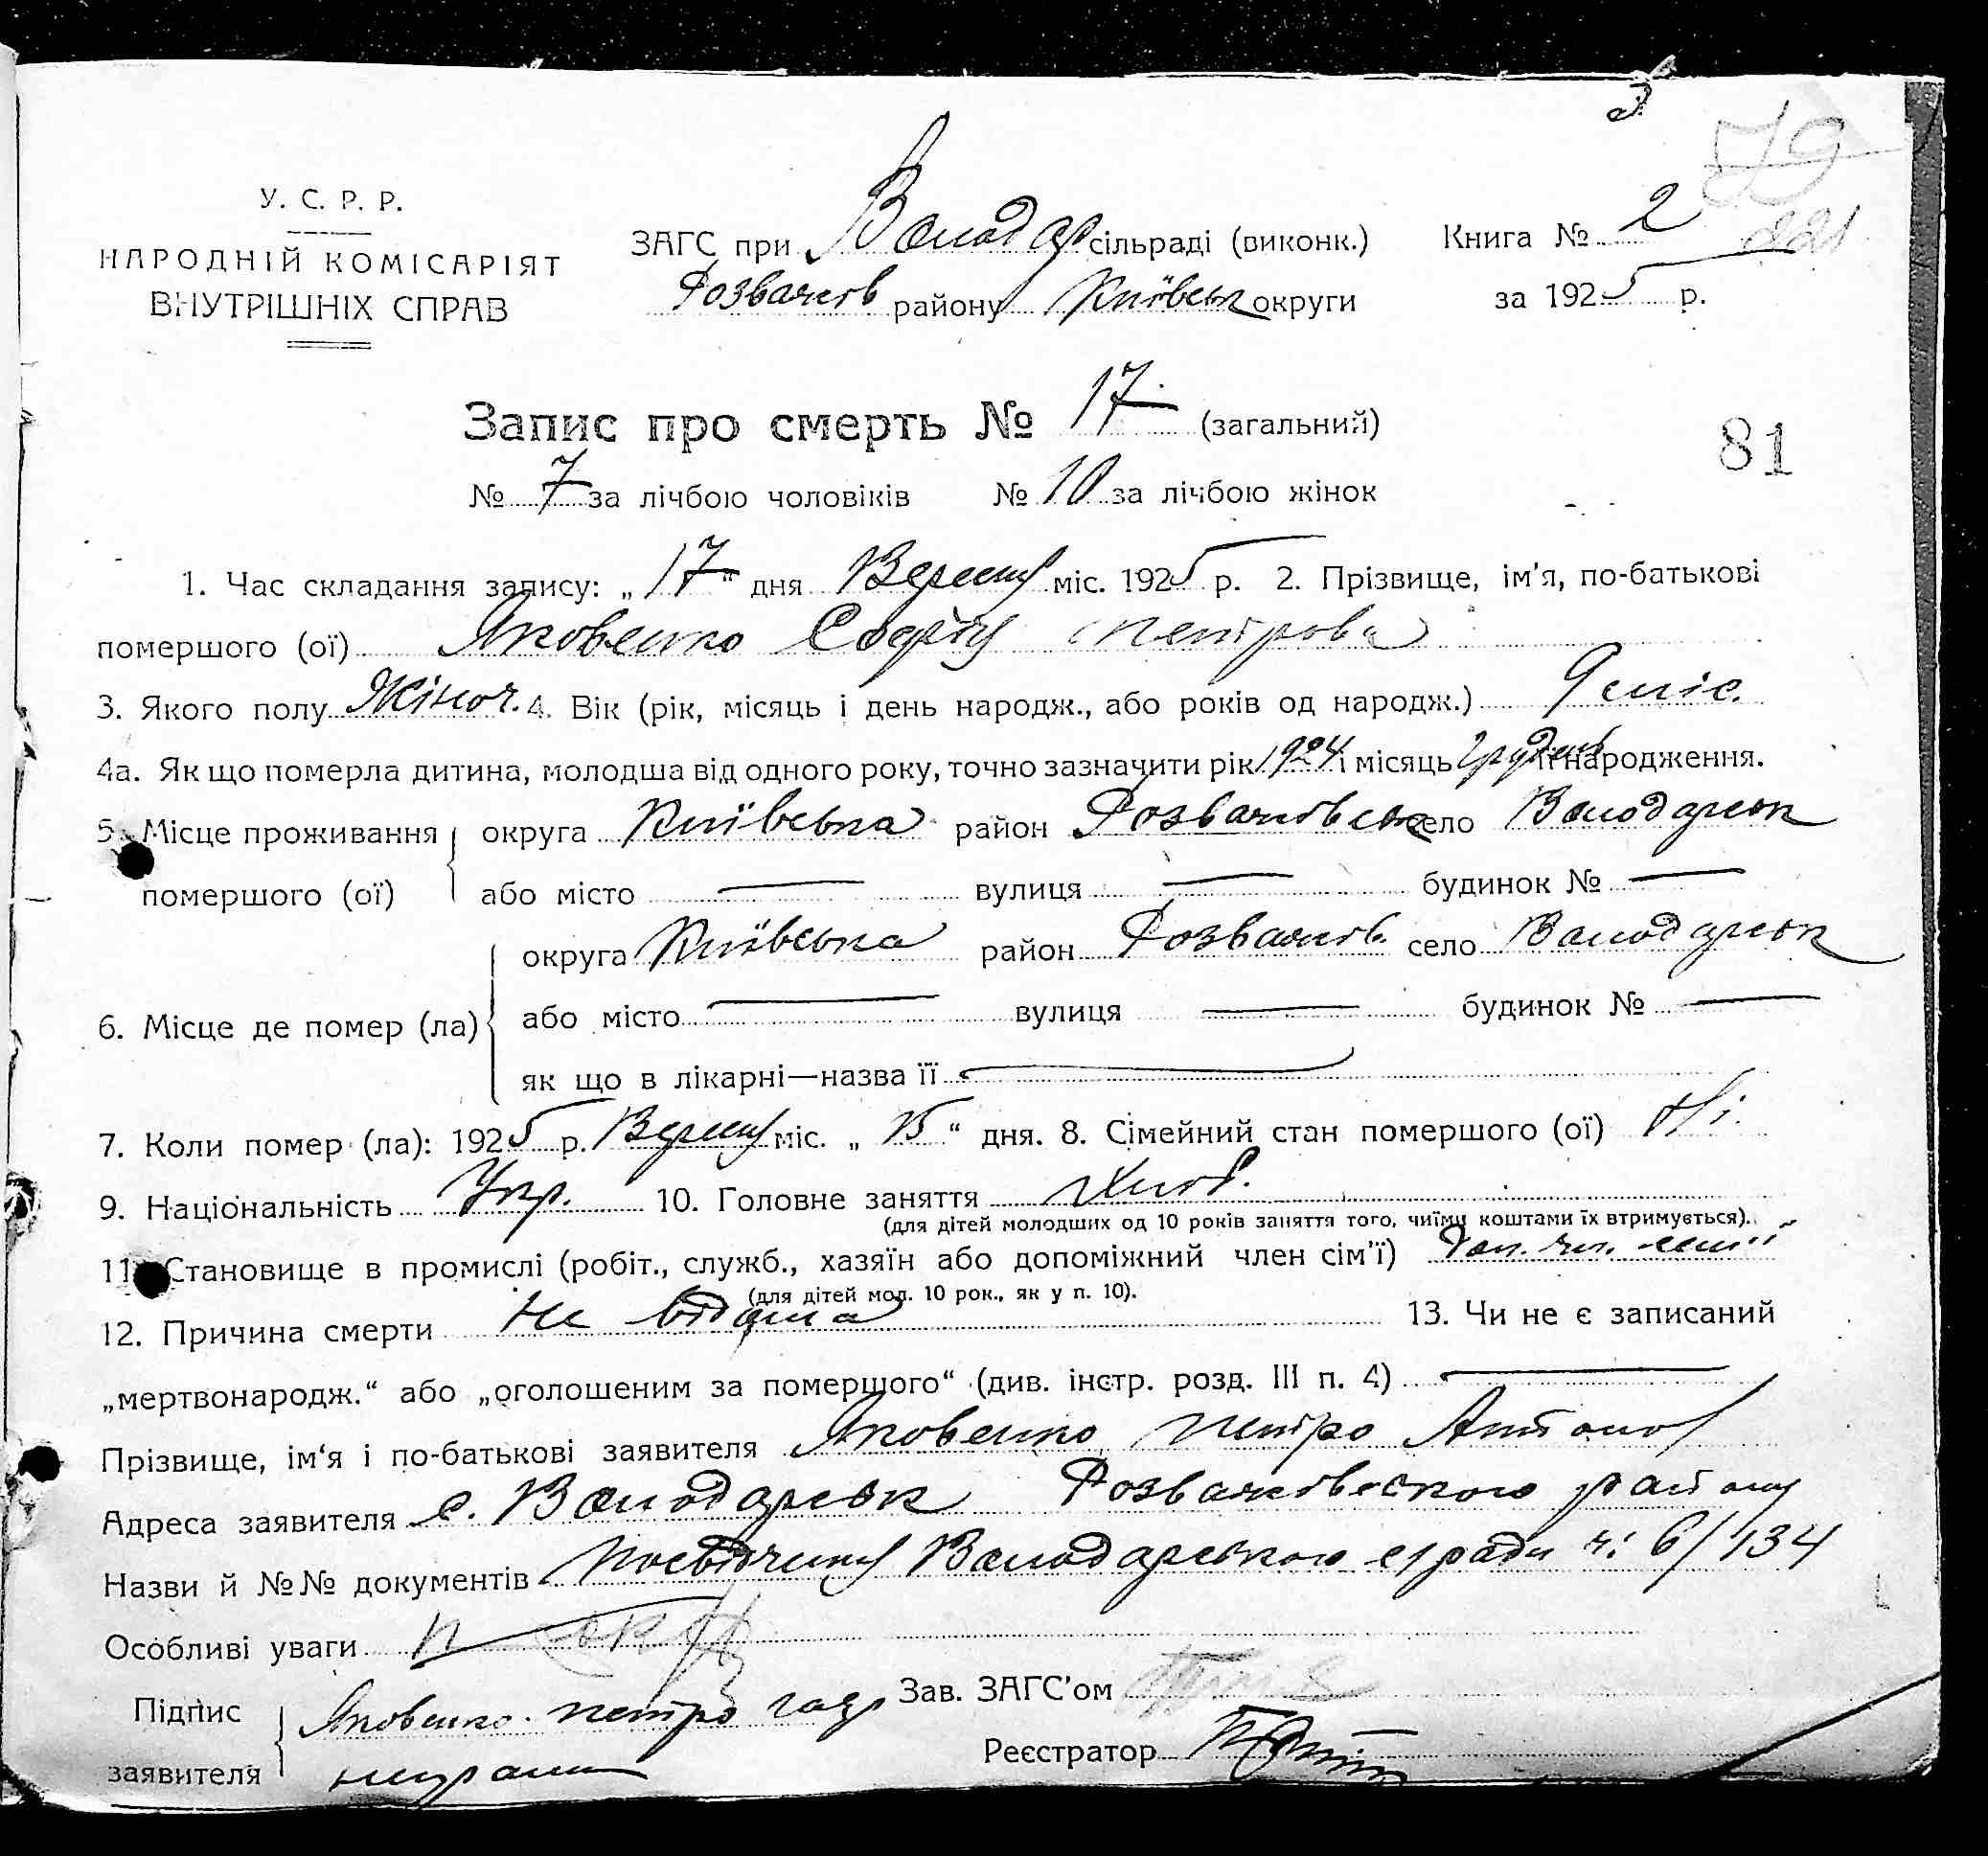 79
221
У. С. Р. Р.
НАРОДНІЙ КОМІСАРІЯТ
ВНУТРІШНІХ СПРАВ
ЗАГС при Володар сільраді (виконк.) Книга № 2
Розважів району Київськ округи за 1925 р.
Запис про смерть № 17 (загальний)
81
№ 7 за лічбою чоловіків № 10 за лічбою жінок
1. Час складання запису: „17“ дня Вересня міс. 1925 р. 2. Прізвище, ім'я, по-батькові
помершого (ої) Яковенко Софія Петрова
3. Якого полу Жіноч. 4. Вік (рік, місяць і день народж., або років од народж.) 9 міс.
4а. Як що померла дитина, молодша від одного року, точно зазначити рік 1924 і місяць Грудень її народження.
5. Місце проживання округа Київська район Розважівськ село Володарськ
помершого (ої) або місто — вулиця — будинок № —
округа Київська район Розважів. село Володарськ
6. Місце де помер (ла) або місто — вулиця — будинок № —
як що в лікарні—назва її —
7. Коли помер (ла): 1925 р. Вересня міс. „15“ дня. 8. Сімейний стан помершого (ої) Ні.
9. Національність Укр. 10. Головне заняття Хліб.
(для дітей молодших од 10 років заняття того, чиїми коштами їх втримується).
11. Становище в промислі (робіт., служб., хазяїн або допоміжний член сім'ї) Доп. чл. сем'ї
(для дітей мол. 10 рок., як у п. 10).
12. Причина смерти Не відома 13. Чи не є записаний
„мертвонародж.“ або „оголошеним за помершого“ (див. інстр. розд. III п. 4) —
Прізвище, ім'я і по-батькові заявителя Яковенко Петро Антонов
Адреса заявителя с. Володарськ Розважівського району
Назви й №№ документів Посвідчення Володарської с/ради ч: 6/134
Особливі уваги
Підпис Яковенко Петро Зав. ЗАГС'ом
заявителя Реєстратор